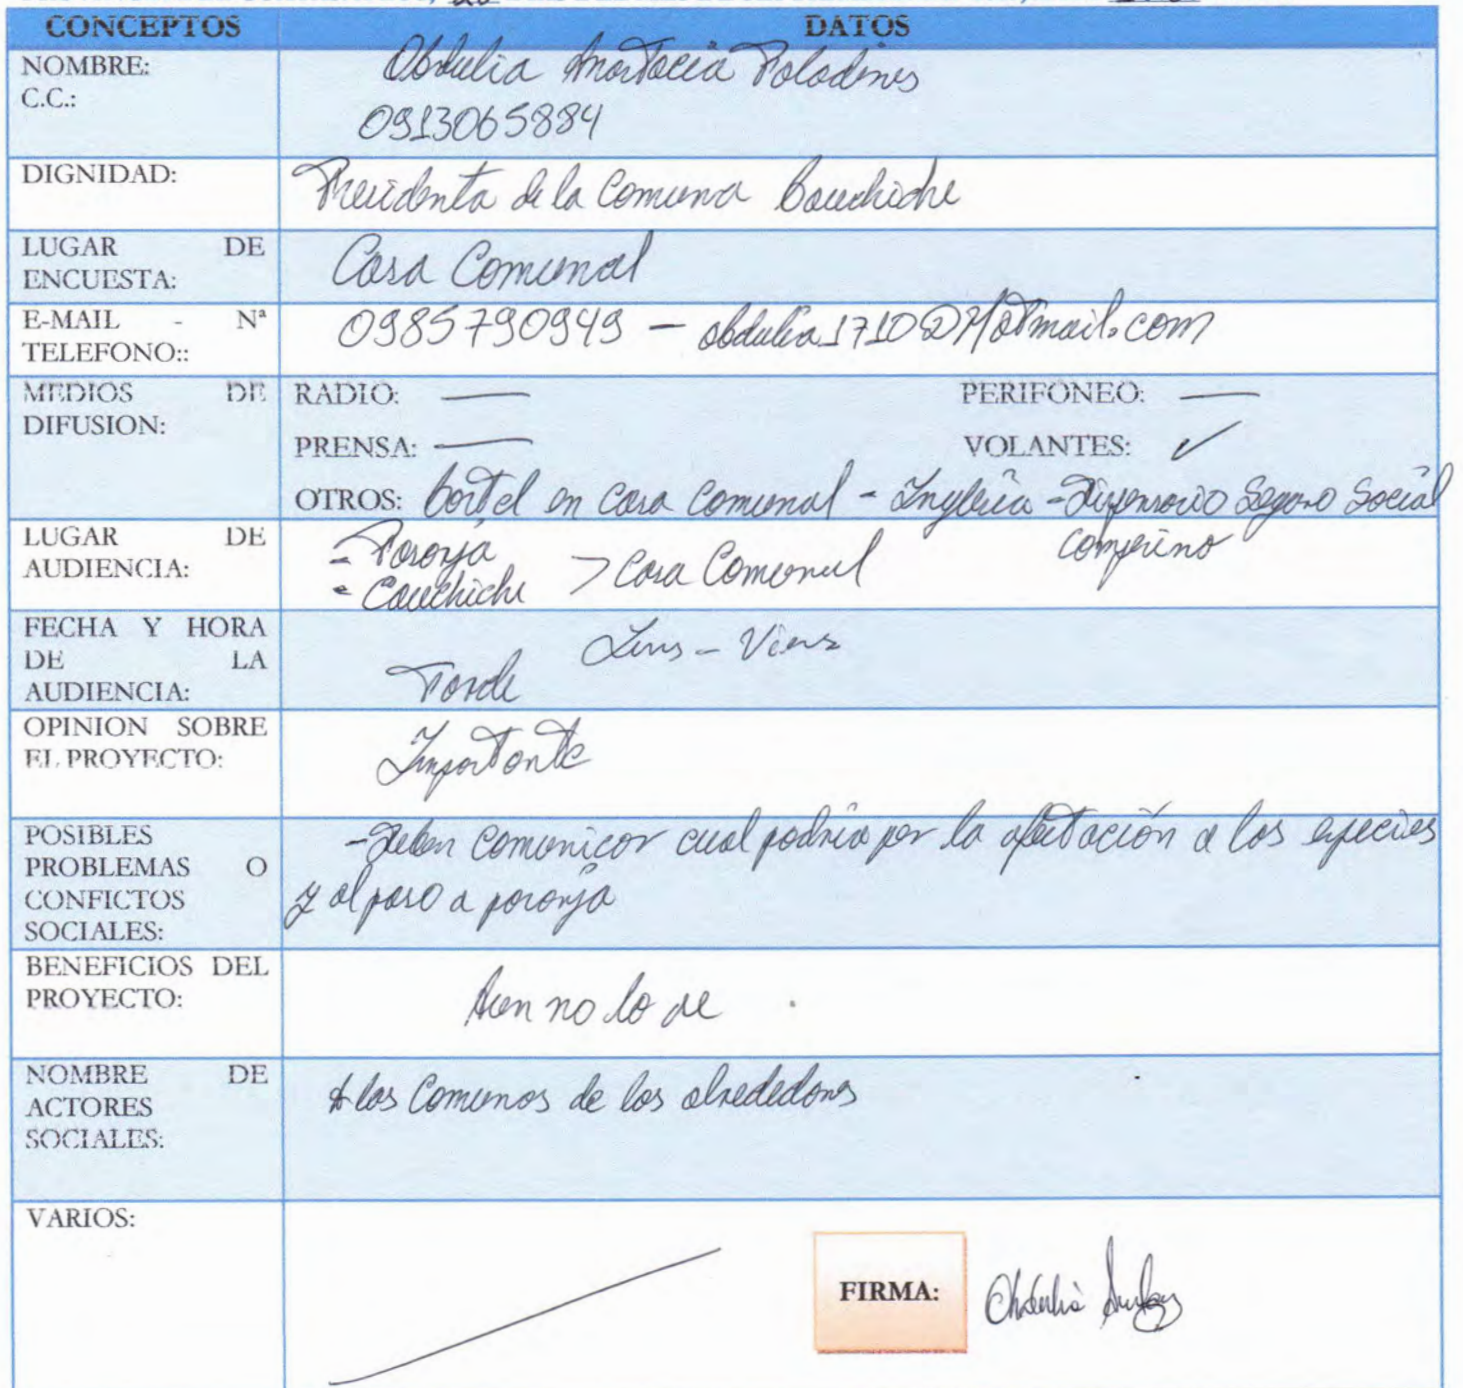 CONCEPTOS DATOS
NOMBRE: Obdulia Anastacia Paladines
C.C.: 0913065884
DIGNIDAD: Presidenta de la Comuna Cauchiche
LUGAR DE
ENCUESTA: Casa Comunal
E-MAIL - Nª
TELEFONO:: 0985790949 - obdulia1710@Hotmail.com
MEDIOS DE
DIFUSION:
RADIO: — PERIFONEO: —
PRENSA: — VOLANTES: ✓
OTROS: Cartel en Casa Comunal - Inglecia - Dispensario Seguro Social
Campecino
LUGAR DE
AUDIENCIA:
- Posorja
- Cauchiche > Casa Comunal
FECHA Y HORA
DE LA
AUDIENCIA:
Luns - Viers
Tarde
OPINION SOBRE
EL PROYECTO: Importante
POSIBLES
PROBLEMAS O
CONFICTOS
SOCIALES:
-Deben comunicar cual podria per la afectación a las especies
y al paso a posorja
BENEFICIOS DEL
PROYECTO: Aun no lo se
NOMBRE DE
ACTORES
SOCIALES:
A las Comunas de los alrededores
VARIOS:
FIRMA: Obdulia